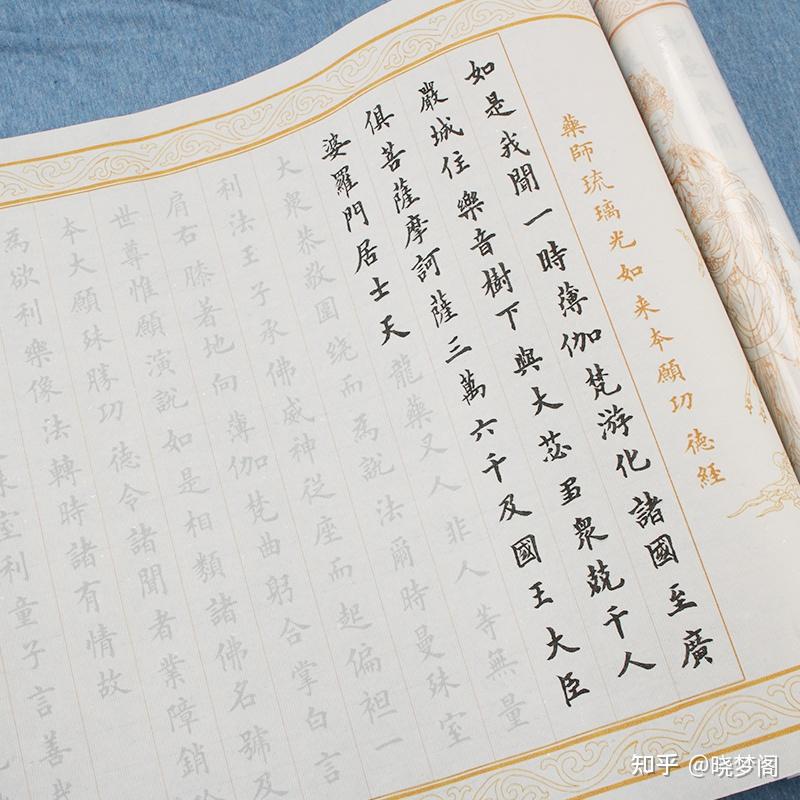 藥師琉璃光如来本願功德經
如是我聞一時薄伽梵游化諸國至廣
嚴城住樂音樹下與大苾芻眾兢千人
俱菩薩摩訶薩三萬六千及國王大臣
婆羅門居士天龍藥叉人非人等無量
大眾恭敬圍绕而為說法爾時曼殊室
利法王子承佛威神從座而起偏袒一
肩右膝著地向薄伽梵曲躬合掌白言
世尊惟願演說如是相類諸佛名號及
本大願殊勝功德令諸聞者業障銷
為欲利樂像法轉時諸有情故
室利童子言善
知乎 @晓梦阁